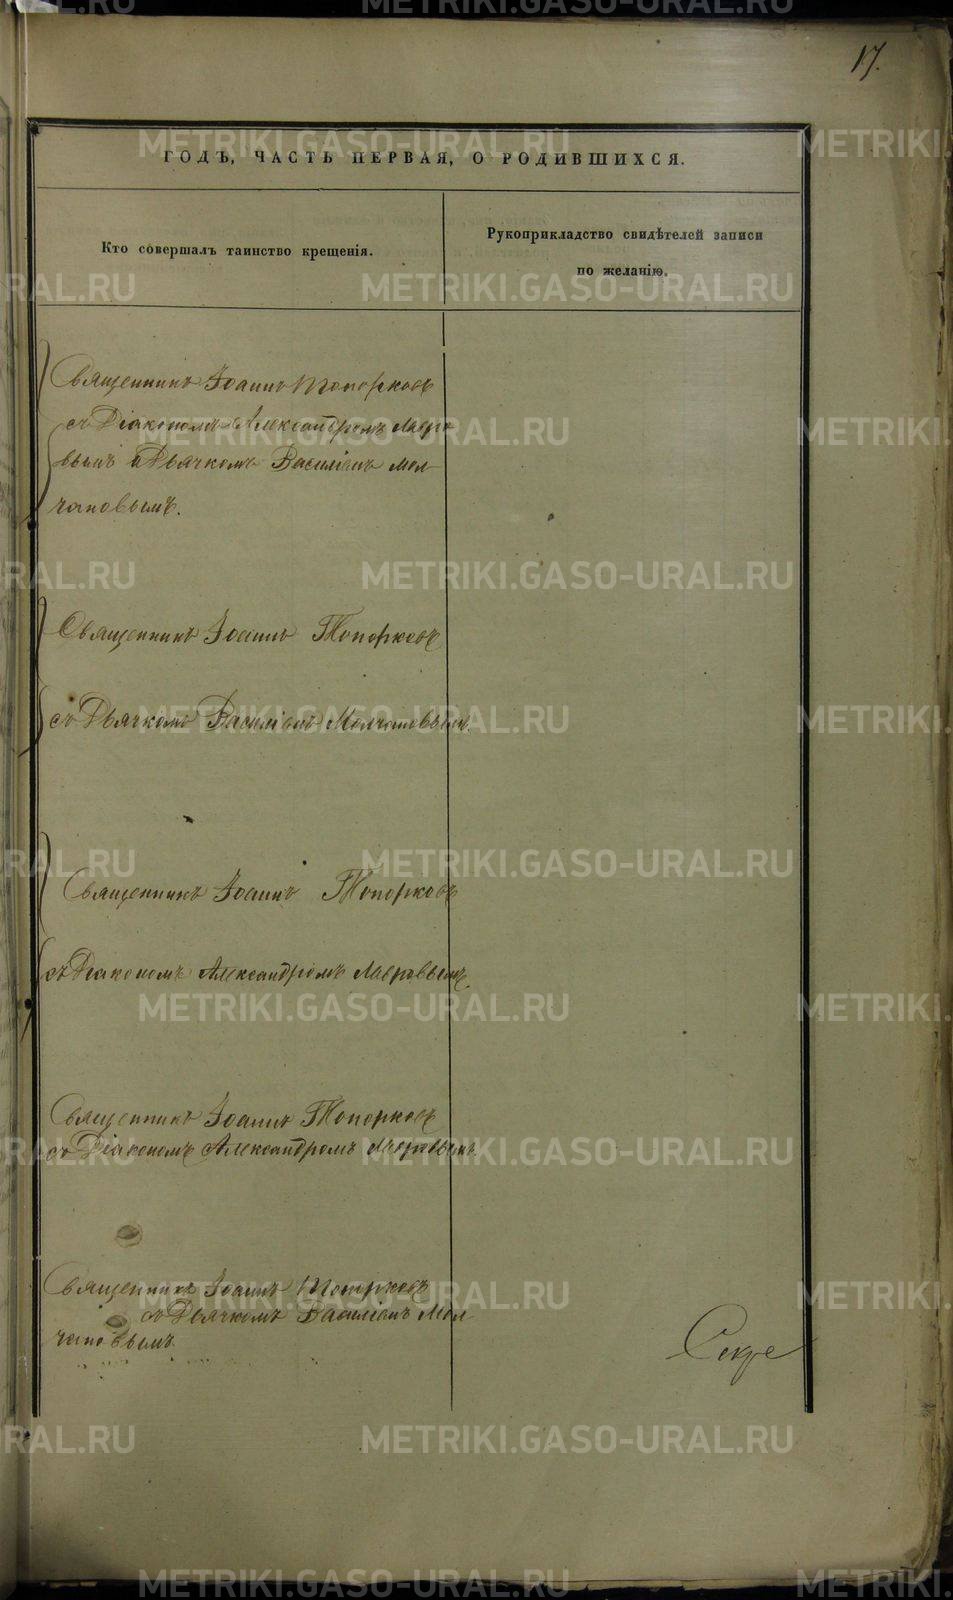 17.
ГОДЪ, ЧАСТЬ ПЕРВАЯ, О РОДИВШИХСЯ.
Кто совершалъ таинство крещенія.
Рукоприкладство свидѣтелей записи
по желанію.
Священникъ Іоаннъ Топорковъ
съ Діакономъ Александромъ Лавро
вымъ и Дьячкомъ Василіемъ Мол-
чановымъ.
Священникъ Іоаннъ Топорковъ
съ Дьячкомъ Василіемъ Молчановымъ.
Священникъ Іоаннъ Топорковъ
съ Діакономъ Александромъ Лавровымъ.
Священникъ Іоаннъ Топорковъ
съ Діакономъ Александромъ Лавровымъ.
Священникъ Іоаннъ Топорковъ
съ Дьячкомъ Василіемъ Мол
чановымъ.
Секре
METRIKI.GASO-URAL.RU